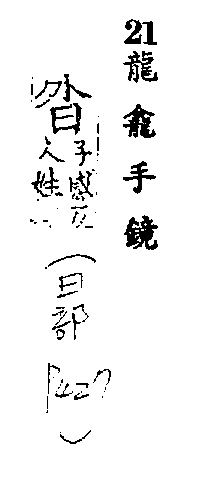 21龍龕手鏡
昝子感反
人姓
(日部
P427
)